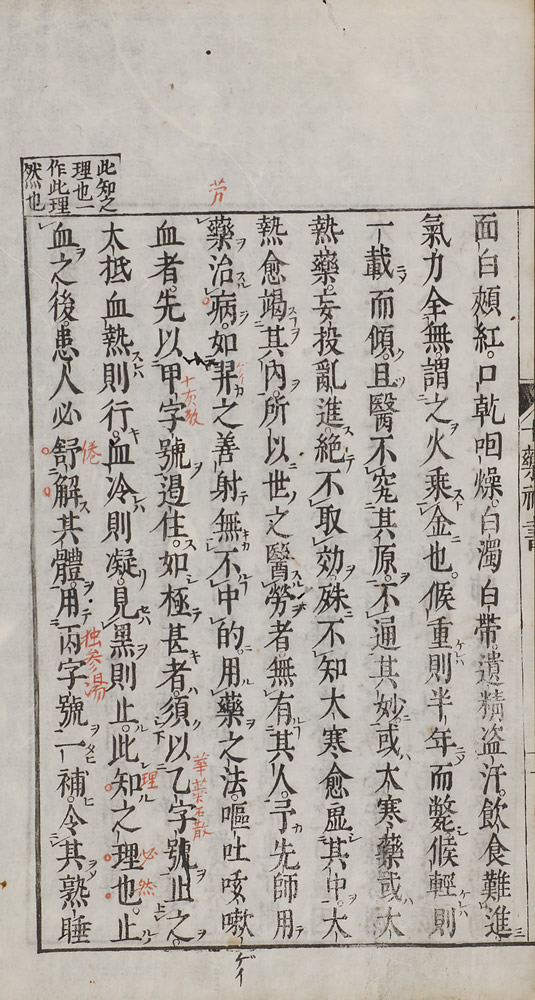 十藥神書
面白頰紅。口乾咽燥。白濁白帶。遺精盜汗。飲食難進。
氣力全無。謂之火乘金也。候重則半年而斃。候輕則
一載而傾。且醫不究其原。不通其妙。或大寒藥或大
熱藥。妄投亂進。絶不取効。殊不知大寒愈虛其中。大
熱愈竭其內。所以世之醫勞者。無有其人。予先師用
藥治病。如羿之善射無不中的。用藥之法。嘔吐咳嗽
血者。先以甲字號遏住。如極甚者。須以乙字號止之。
大抵血熱則行。血冷則凝。見黑則止。此知之理也。止
血之後。患人必舒解其體。用丙字號一補。令其熟睡
此知之
理也一
作此理
然也
勞
十灰散
花蕊石散
理
必然
倦
独参湯